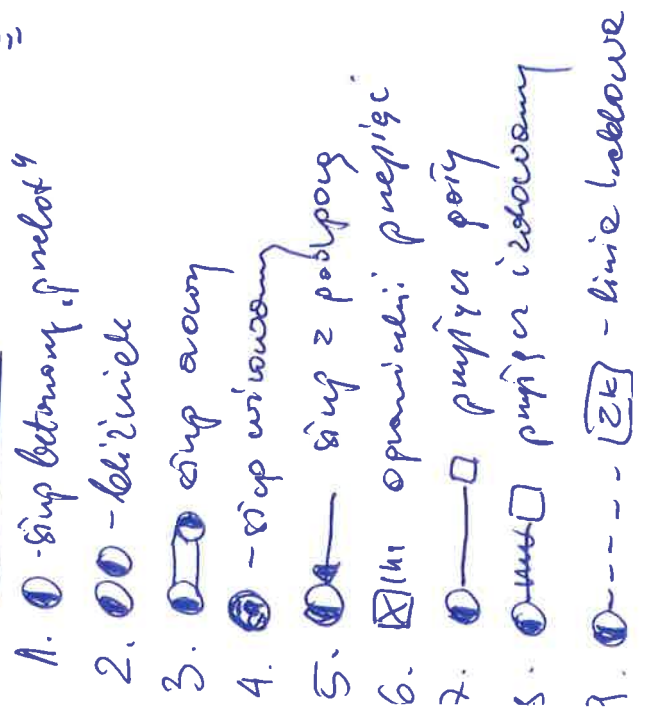 1. - słup betonowy "przelot"
2. - bliźniak
3. słup
4. - słup wirowany
5. słup z podporą
6. ograniczniki przepięć
7. przyłącz goły
8. przyłącz izolowany
9. ZK - linia kablowa